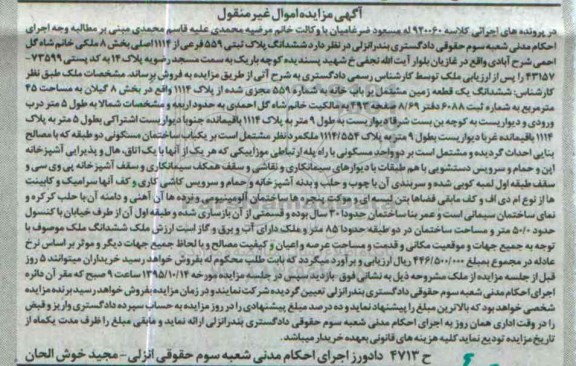 آگهی مزایده اموال غیر منقول
در پرونده های اجرائی کلاسه ۹۲۰۰۶۰ له مسعود ضرغامیان با وکالت خانم مرضیه محمدی علیه قاسم محمدی مبنی بر مطالبه وجه اجرای
احکام مدنی شعبه سوم حقوقی دادگستری بندرانزلی در نظر دارد ششدانگ پلاک ثبتی ۵۵۹ فرعی از ۱۱۱۴ اصلی بخش ۸ ملکی خانم شاه گل
احمی شرح آبادی واقع در غازیان بلوار آیت الله نجفی خ شهید پسندیده کوچه باریک به سمت مسجد رضویه پلاک ۱۴ به کد پستی ۷۳۵۹۹-
۴۳۱۵۷ را پس از ارزیابی ملک توسط کارشناس رسمی دادگستری به شرح آتی از طریق مزایده به فروش برساند. مشخصات ملک طبق نظر
کارشناس: ششدانگ یک قطعه زمین مشتمل بر باب خانه به شماره ۵۵۹ مجزی شده از پلاک ۱۱۱۴ واقع در بخش ۸ گیلان به مساحت ۴۵
مترمربع به شماره ثبت ۶۰۸۸ دفتر ۸/۶۹ صفحه ۴۹۳ به مالکیت خانم شاه گل احمدی به حدود اربعه و مشخصات شمالا به طول ۵ متر درب
ورودی و دیواریست به کوچه بن بست شرقا دیواریست به طول ۹ متر به پلاک ۱۱۱۴ باقیمانده جنوبا دیواریست اشتراکی بطول ۵ متر به پلاک
۱۱۱۴ باقیمانده غربا دیواریست بطول ۹ متر به پلاک ۱۱۱۴/۵۵۴ ملک مورد نظر مشتمل است بر یکباب ساختمان مسکونی دو طبقه که با مصالح
بنایی احداث گردیده و مشتمل است بر دو واحد مسکونی با راه پله ارتباطی موزاییکی که هر یک از آنها با یک اتاق، هال و پذیرایی آشپزخانه
این و حمام و سرویس دستشویی با هم طبقات با دیوارهای سیمانکاری و نقاشی و سقف همکف سیمانکاری و سقف آشپزخانه پی وی سی و
سقف طبقه اول لمبه کوبی شده و سربندی آن با چوب و حلب و بدنه آشپزخانه و حمام و سرویس کاشی کاری و کف آنها سرامیک و کابینت
ها از نوع ام دی اف و کف مابقی فضاها بتن لیسه ای و موکت پنجره های ساختمان آلومینیومی و نرده ها آن آهنی و دامنه آن با حلب کر کره و
نمای ساختمان سیمانی است و عمر بنا ساختمان حدودا ۳۰ سال بوده و قسمتی از آن بازسازی شده و طبقه اول آن از طرف خیابان با کنسول
حدود ۵۰/۰ متر و مساحت ساختمان در دو طبقه حدودا ۸۵ متر و ملک دارای آب و برق و گاز است ارزش ملک ششدانگ ملک موصوف با
توجه به جمیع جهات و موقعیت مکانی و قدمت و مساحت عرصه و اعیان و کیفیت مصالح و با لحاظ جمیع جهات دیگر و موثر بر اساس نرخ
عادله در مجموع بمبلغ ۴۴۶/۵۰۰/۰۰۰ ریال ارزیابی و برآورد میگردد که بابت طلب محکوم له بفروش خواهد رسید خریداران میتوانند ۵ روز
قبل از جلسه مزایده از ملک مشروحه ذیل به نشانی فوق بازدید سپس در جلسه مزایده بمورخه ۱۳۹۵/۱۰/۱۴ ساعت ۹ صبح که مقر آن دائره
اجرای احکام مدنی شعبه سوم حقوقی دادگستری بندرانزلی تعیین گردیده شرکت نمایند و در زمان مزایده بفروش خواهد رسید برنده مزایده
شخصی خواهد بود که بالاترین مبلغ را پیشنهاد نماید و ده درصد مبلغ پیشنهادی را در روز مزایده به حساب سپرده دادگستری واریز و قبض
را در وقت اداری همان روز به اجرای احکام مدنی شعبه سوم حقوقی دادگستری بندرانزلی ارائه نماید و مابقی مبلغ را ظرف مدت یکماه از
تاریخ مزایده تودیع نماید کلیه هزینه های قانونی بعهده خریدار میباشد.
ح ۴۷۱۳ دادورز اجرای احکام مدنی شعبه سوم حقوقی انزلی - مجید خوش الحان